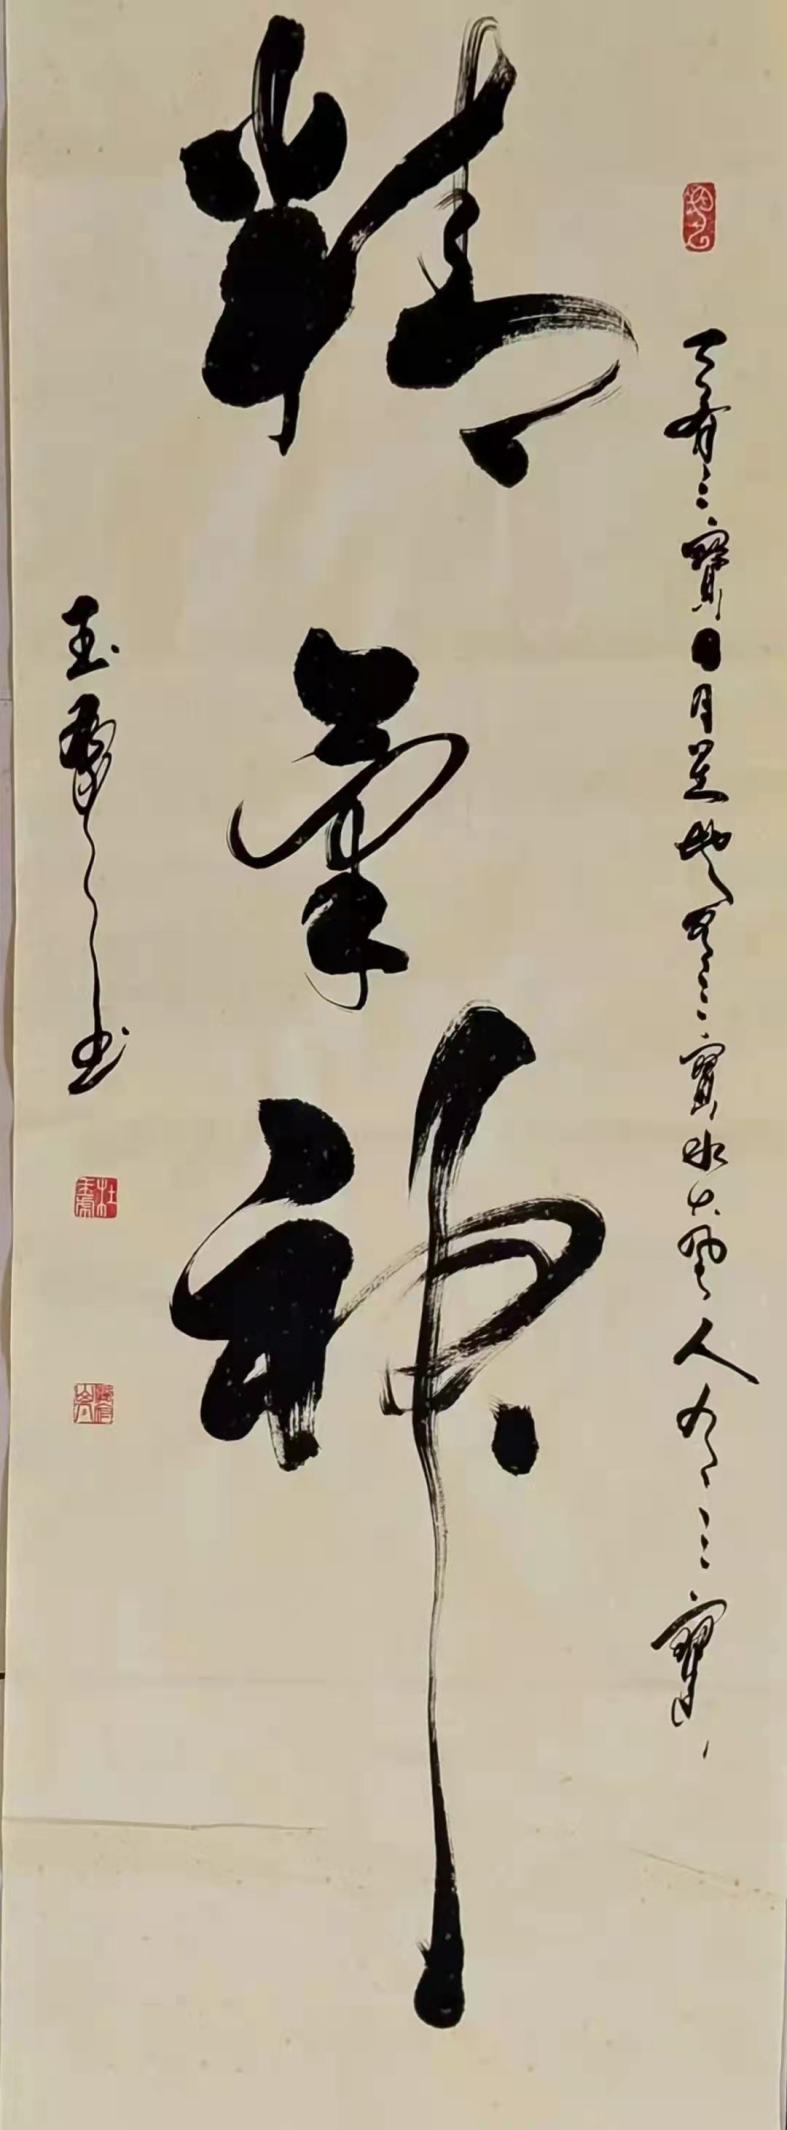 天有三寶日月星地有三寶水火風人有三寶
精氣神
玉豪書